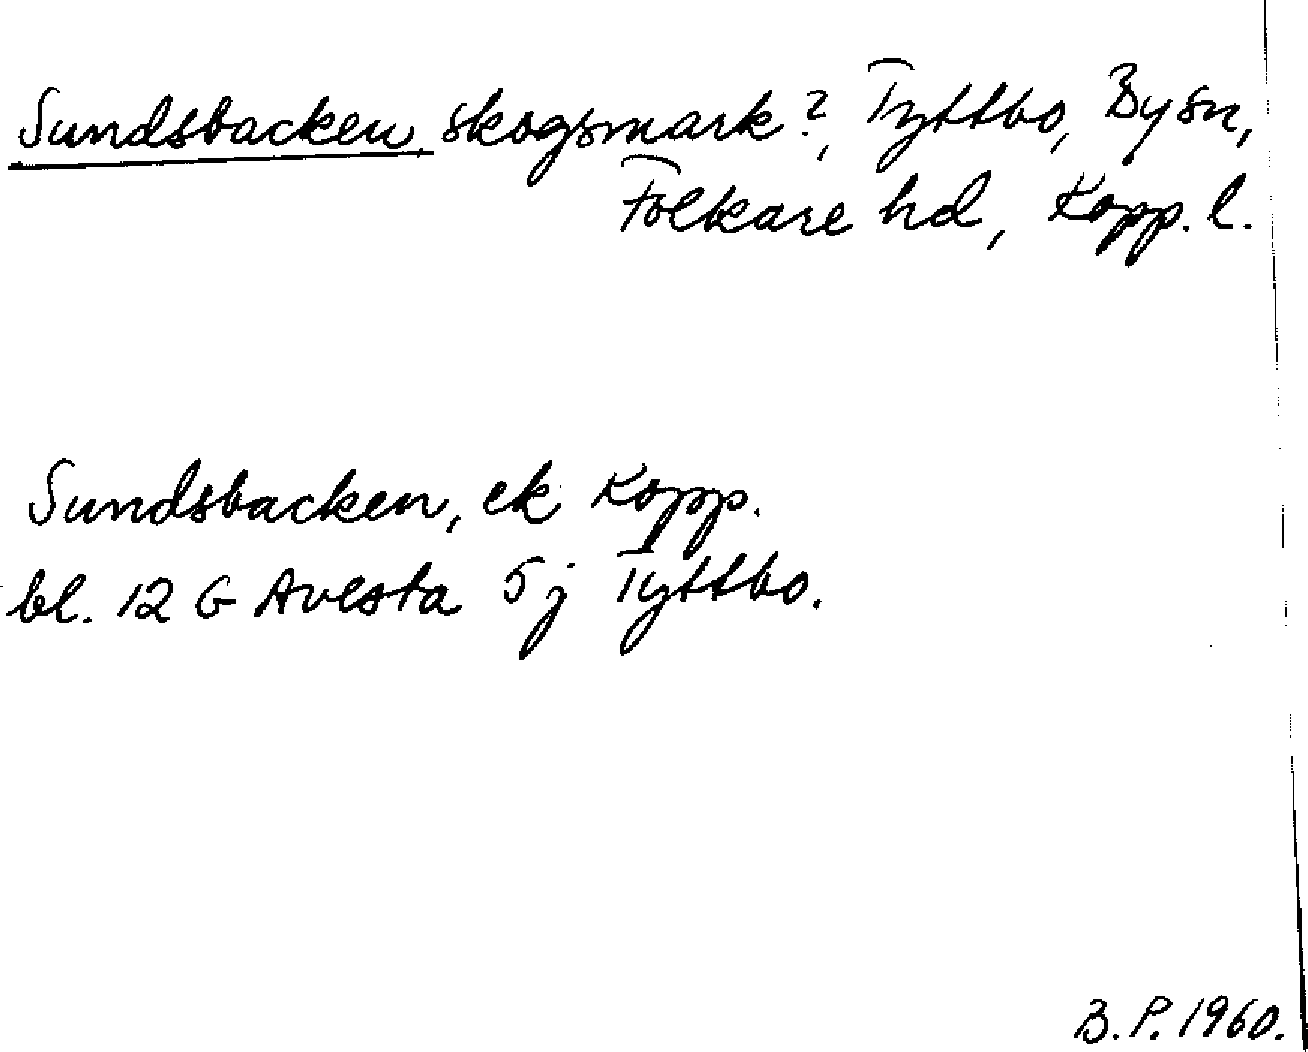 Sundsbacken, skogsmark?, Tyttbo, By sn,
Folkare hd, Kopp. l.
Sundsbacken, ek Kopp.
bl. 12 G Avesta 5j Tyttbo.
B.P. 1960.